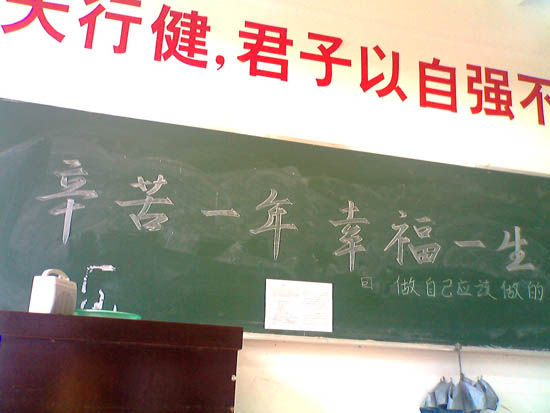 天行健,君子以自强不
辛苦一年 幸福一生
曰 做自己应该做的